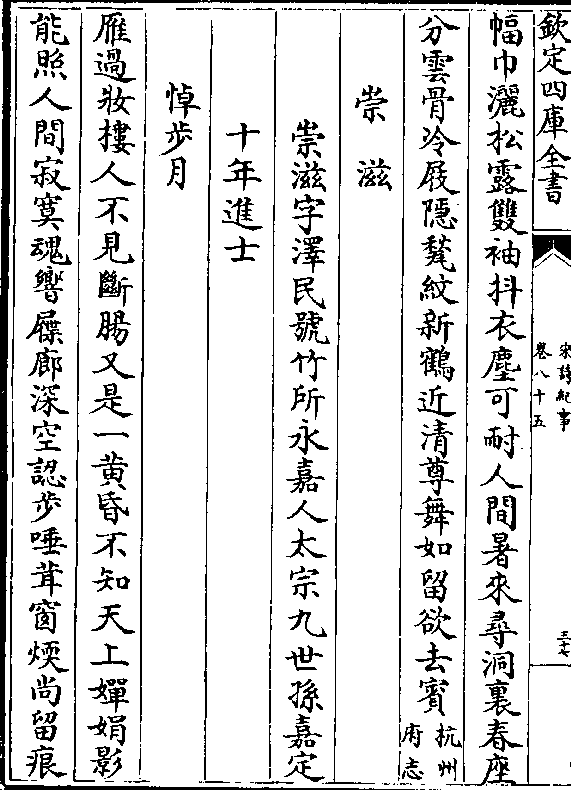 欽定四庫全書
宋詩紀事
卷八十五
三十七
幅巾灑松露雙袖抖衣塵可耐人間暑來尋洞裏春座
分雲骨冷屐隱蘚紋新鶴近清尊舞如留欲去賓杭州府志
崇滋
崇滋字澤民號竹所永嘉人太宗九世孫嘉定
十年進士
悼步月
雁過妝樓人不見斷腸又是一黄昏不知天上嬋娟影
能照人間寂寞魂響屧廊深空認步唾茸窗煗尚留痕